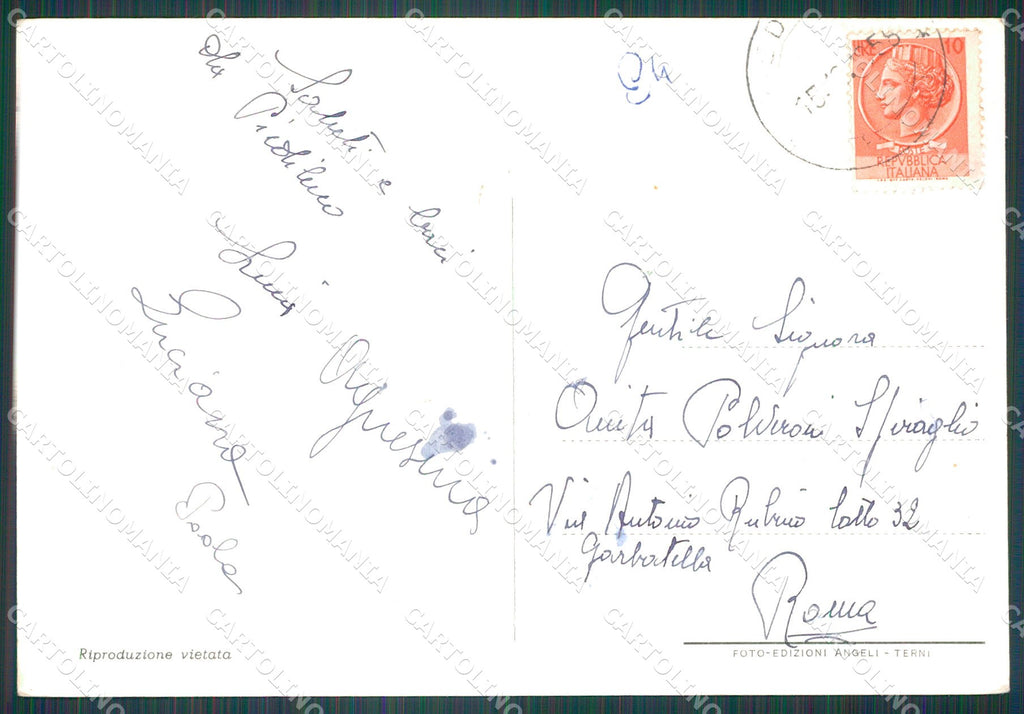 Saluti e baci
da Piediluco
Luciana
Agnesina
Paola
Gentile Signora
Anita Polveroni Spiraglio
Via Antonio Rubino lotto 32
Garbatella
Roma
LIRE 10
POSTE
REPVBBLICA
ITALIANA
15
Riproduzione vietata
FOTO-EDIZIONI ANGELI - TERNI
CARTOLINOMANIA